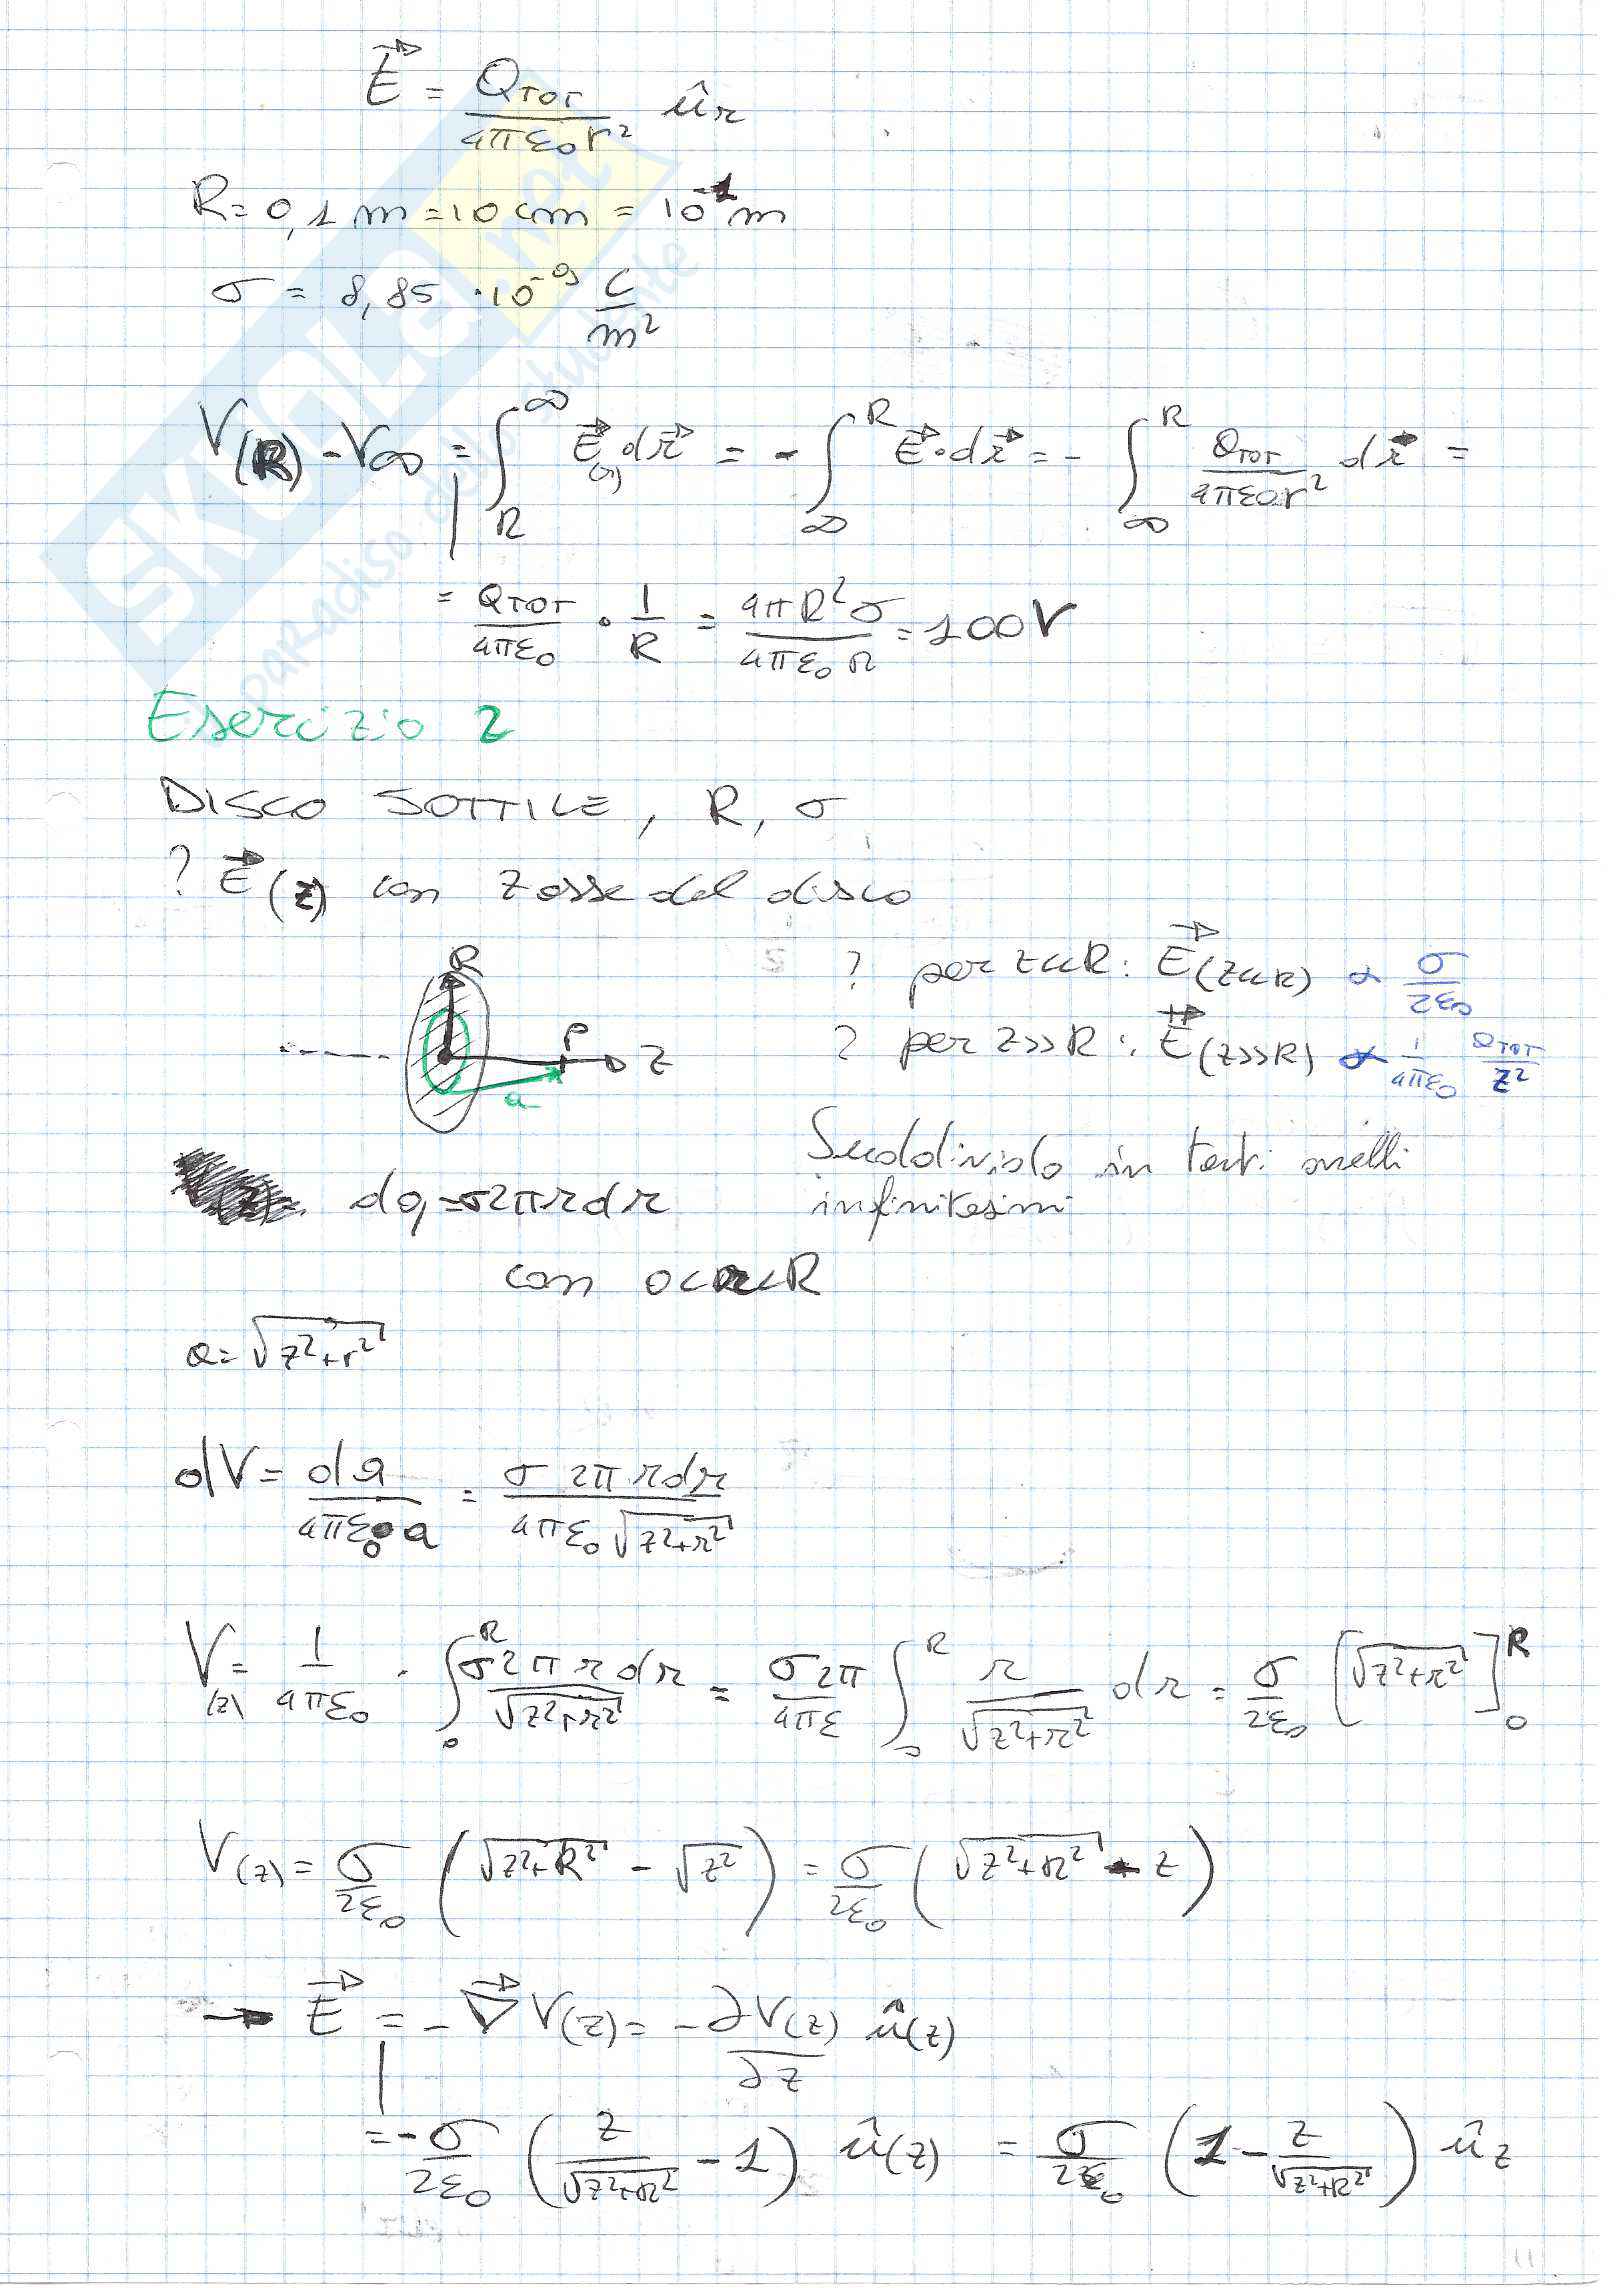 E⃗ = Q_TOT / 4πε₀r² û_r
R = 0,1 m = 10 cm = 10⁻¹ m
σ = 8,85 · 10⁻⁹ C/m²
V(R) - V∞ = ∫_R^∞ E⃗(r) dr⃗ = - ∫_∞^R E⃗ · dr⃗ = - ∫_∞^R Q_TOT / 4πε₀r² dr⃗ =
= Q_TOT / 4πε₀ · 1/R = 4πR²σ / 4πε₀R = 100V
Esercizio 2
DISCO SOTTILE, R, σ
? E⃗(z) con z asse del disco
? per z<<R: E⃗(z<<R) ∝ σ/2ε₀
? per z>>R: E⃗(z>>R) ∝ 1/4πε₀ Q_TOT/z²
R
P
z
a
Suddivido in tanti anelli
infinitesimi
dq = σ2πrdr
con 0<r<R
a = √(z²+r²)
dV = dq / 4πε₀a = σ 2π r dr / 4πε₀ √(z²+r²)
V(z) = 1/4πε₀ · ∫_0^R σ2πr dr / √(z²+r²) = σ2π/4πε ∫_0^R r / √(z²+r²) dr = σ/2ε₀ [√(z²+r²)]_0^R
V(z) = σ/2ε₀ (√(z²+R²) - √z²) = σ/2ε₀ (√(z²+R²) - z)
→ E⃗ = - ∇⃗ V(z) = - ∂V(z)/∂z û(z)
= - σ/2ε₀ (z/√(z²+R²) - 1) û(z) = σ/2ε₀ (1 - z/√(z²+R²)) û_z
11
SKUOLA.net
paradiso dello studente